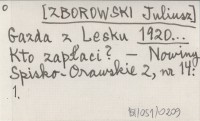 [ZBOROWSKI Juliusz]
Gazda z Lesku 1920...
Kto zapłaci? - Nowiny
Spisko-Orawskie 2, nr 14:
1.